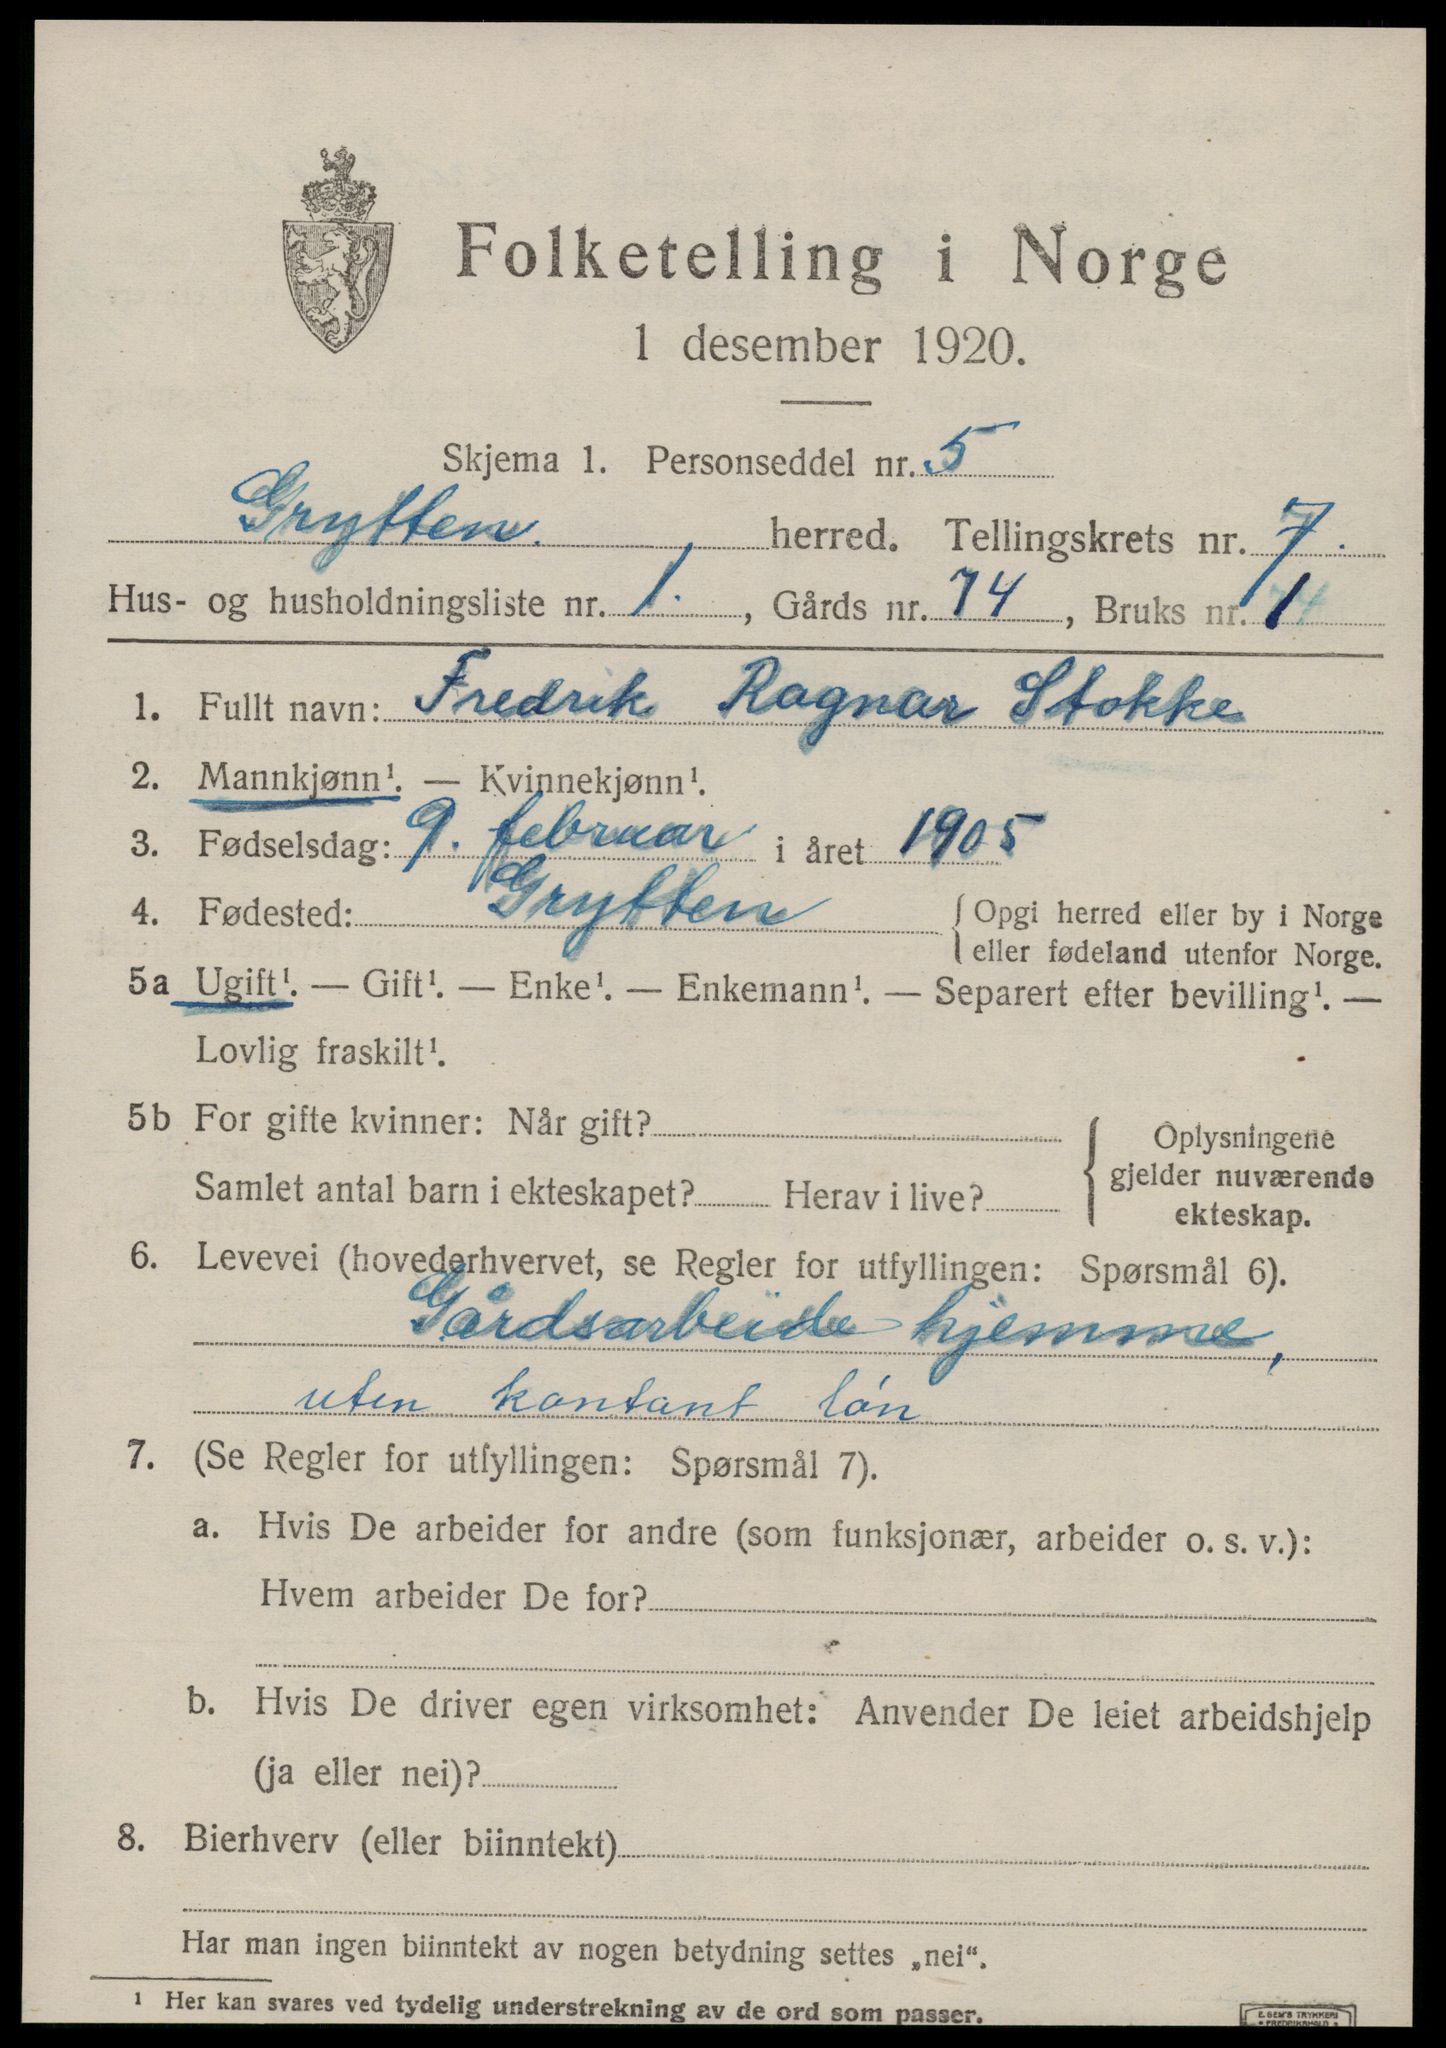 Folketelling i Norge
1 desember 1920.
Skjema 1. Personseddel nr. 5
Grytten. herred. Tellingskrets nr. 7.
Hus- og husholdningsliste nr. 1., Gårds nr. 74, Bruks nr. 1
1. Fullt navn: Fredrik Ragnar Stokke
2. Mannkjønn¹. — Kvinnekjønn¹.
3. Fødselsdag: 9. februar i året 1905
4. Fødested: Grytten { Opgi herred eller by i Norge
eller fødeland utenfor Norge.
5a Ugift¹. — Gift¹. — Enke¹. — Enkemann¹. — Separert efter bevilling¹. —
Lovlig fraskilt¹.
5b For gifte kvinner: Når gift?
Samlet antal barn i ekteskapet? Herav i live?
{ Oplysningene
gjelder nuværende
ekteskap.
6. Levevei (hovederhvervet, se Regler for utfyllingen: Spørsmål 6).
Gårdsarbeide hjemme,
uten kontant løn
7. (Se Regler for utfyllingen: Spørsmål 7).
a. Hvis De arbeider for andre (som funksjonær, arbeider o. s. v.):
Hvem arbeider De for?
b. Hvis De driver egen virksomhet: Anvender De leiet arbeidshjelp
(ja eller nei)?
8. Bierhverv (eller biinntekt)
Har man ingen biinntekt av nogen betydning settes „nei“.
1 Her kan svares ved tydelig understrekning av de ord som passer.
E. SEM'S TRYKKERI
• FREDRIKSHALD •